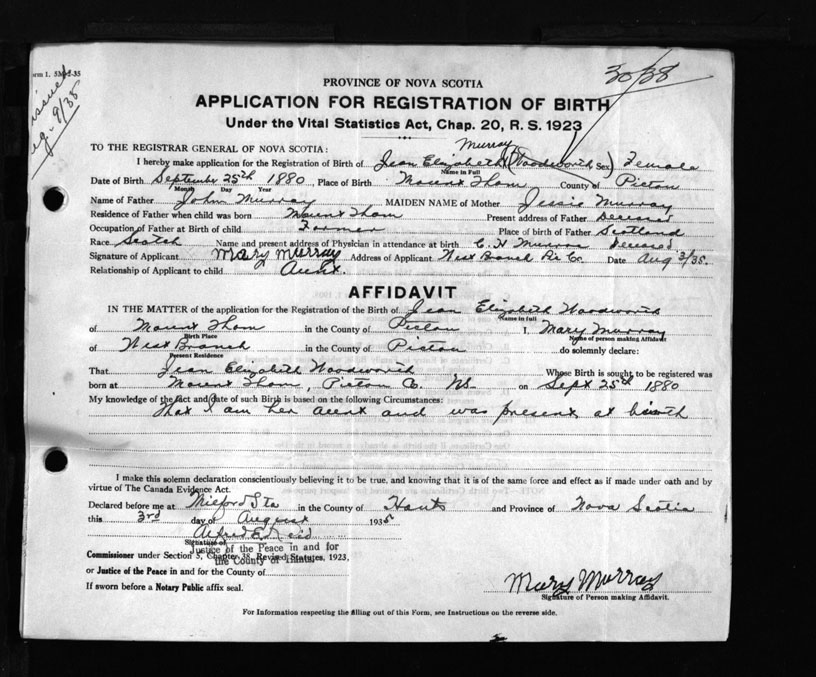 orm 1. 5M-2-35
issued
ug. 9/35
30/38
PROVINCE OF NOVA SCOTIA
APPLICATION FOR REGISTRATION OF BIRTH
Under the Vital Statistics Act, Chap. 20, R. S. 1923
TO THE REGISTRAR GENERAL OF NOVA SCOTIA:
Murray
I hereby make application for the Registration of Birth of Jean Elizabeth (Woodsworth) Sex Female
Name in Full
Date of Birth September 25th 1880, Place of Birth Mount Thom County of Pictou
Month Day Year
Name of Father John Murray MAIDEN NAME of Mother Jessie Murray
Residence of Father when child was born Mount Thom Present address of Father Deceased
Occupation of Father at Birth of child Farmer Place of birth of Father Scotland
Race Scotch Name and present address of Physician in attendance at birth C. H Munroe Deceased
Signature of Applicant Mary Murray Address of Applicant West Branch Pic Co. Date Aug 3/35.
Relationship of Applicant to child Aunt.
AFFIDAVIT
IN THE MATTER of the application for the Registration of the Birth of Jean Elizabeth Woodsworth
Name in full
of Mount Thom in the County of Pictou I, Mary Murray
Birth Place Name of person making Affidavit
of West Branch in the County of Pictou do solemnly declare:
Present Residence
That Jean Elizabeth Woodsworth Whose Birth is sought to be registered was
born at Mount Thom, Pictou Co. NS. on Sept 25th 1880
My knowledge of the fact and date of such Birth is based on the following Circumstances:
That I am her aunt and was present at birth
I make this solemn declaration conscientiously believing it to be true, and knowing that it is of the same force and effect as if made under oath and by
virtue of The Canada Evidence Act.
Declared before me at Milford Sta in the County of Hants and Province of Nova Scotia
this 3rd day of August 1935
Alfred E. Reid
Signature of
Justice of the Peace in and for
Commissioner under Section 3, Chapter 38, Revised Statutes, 1923,
the County of Hants
or Justice of the Peace in and for the County of
If sworn before a Notary Public affix seal.
Mary Murray
Signature of Person making Affidavit.
For Information respecting the filling out of this Form, see Instructions on the reverse side.